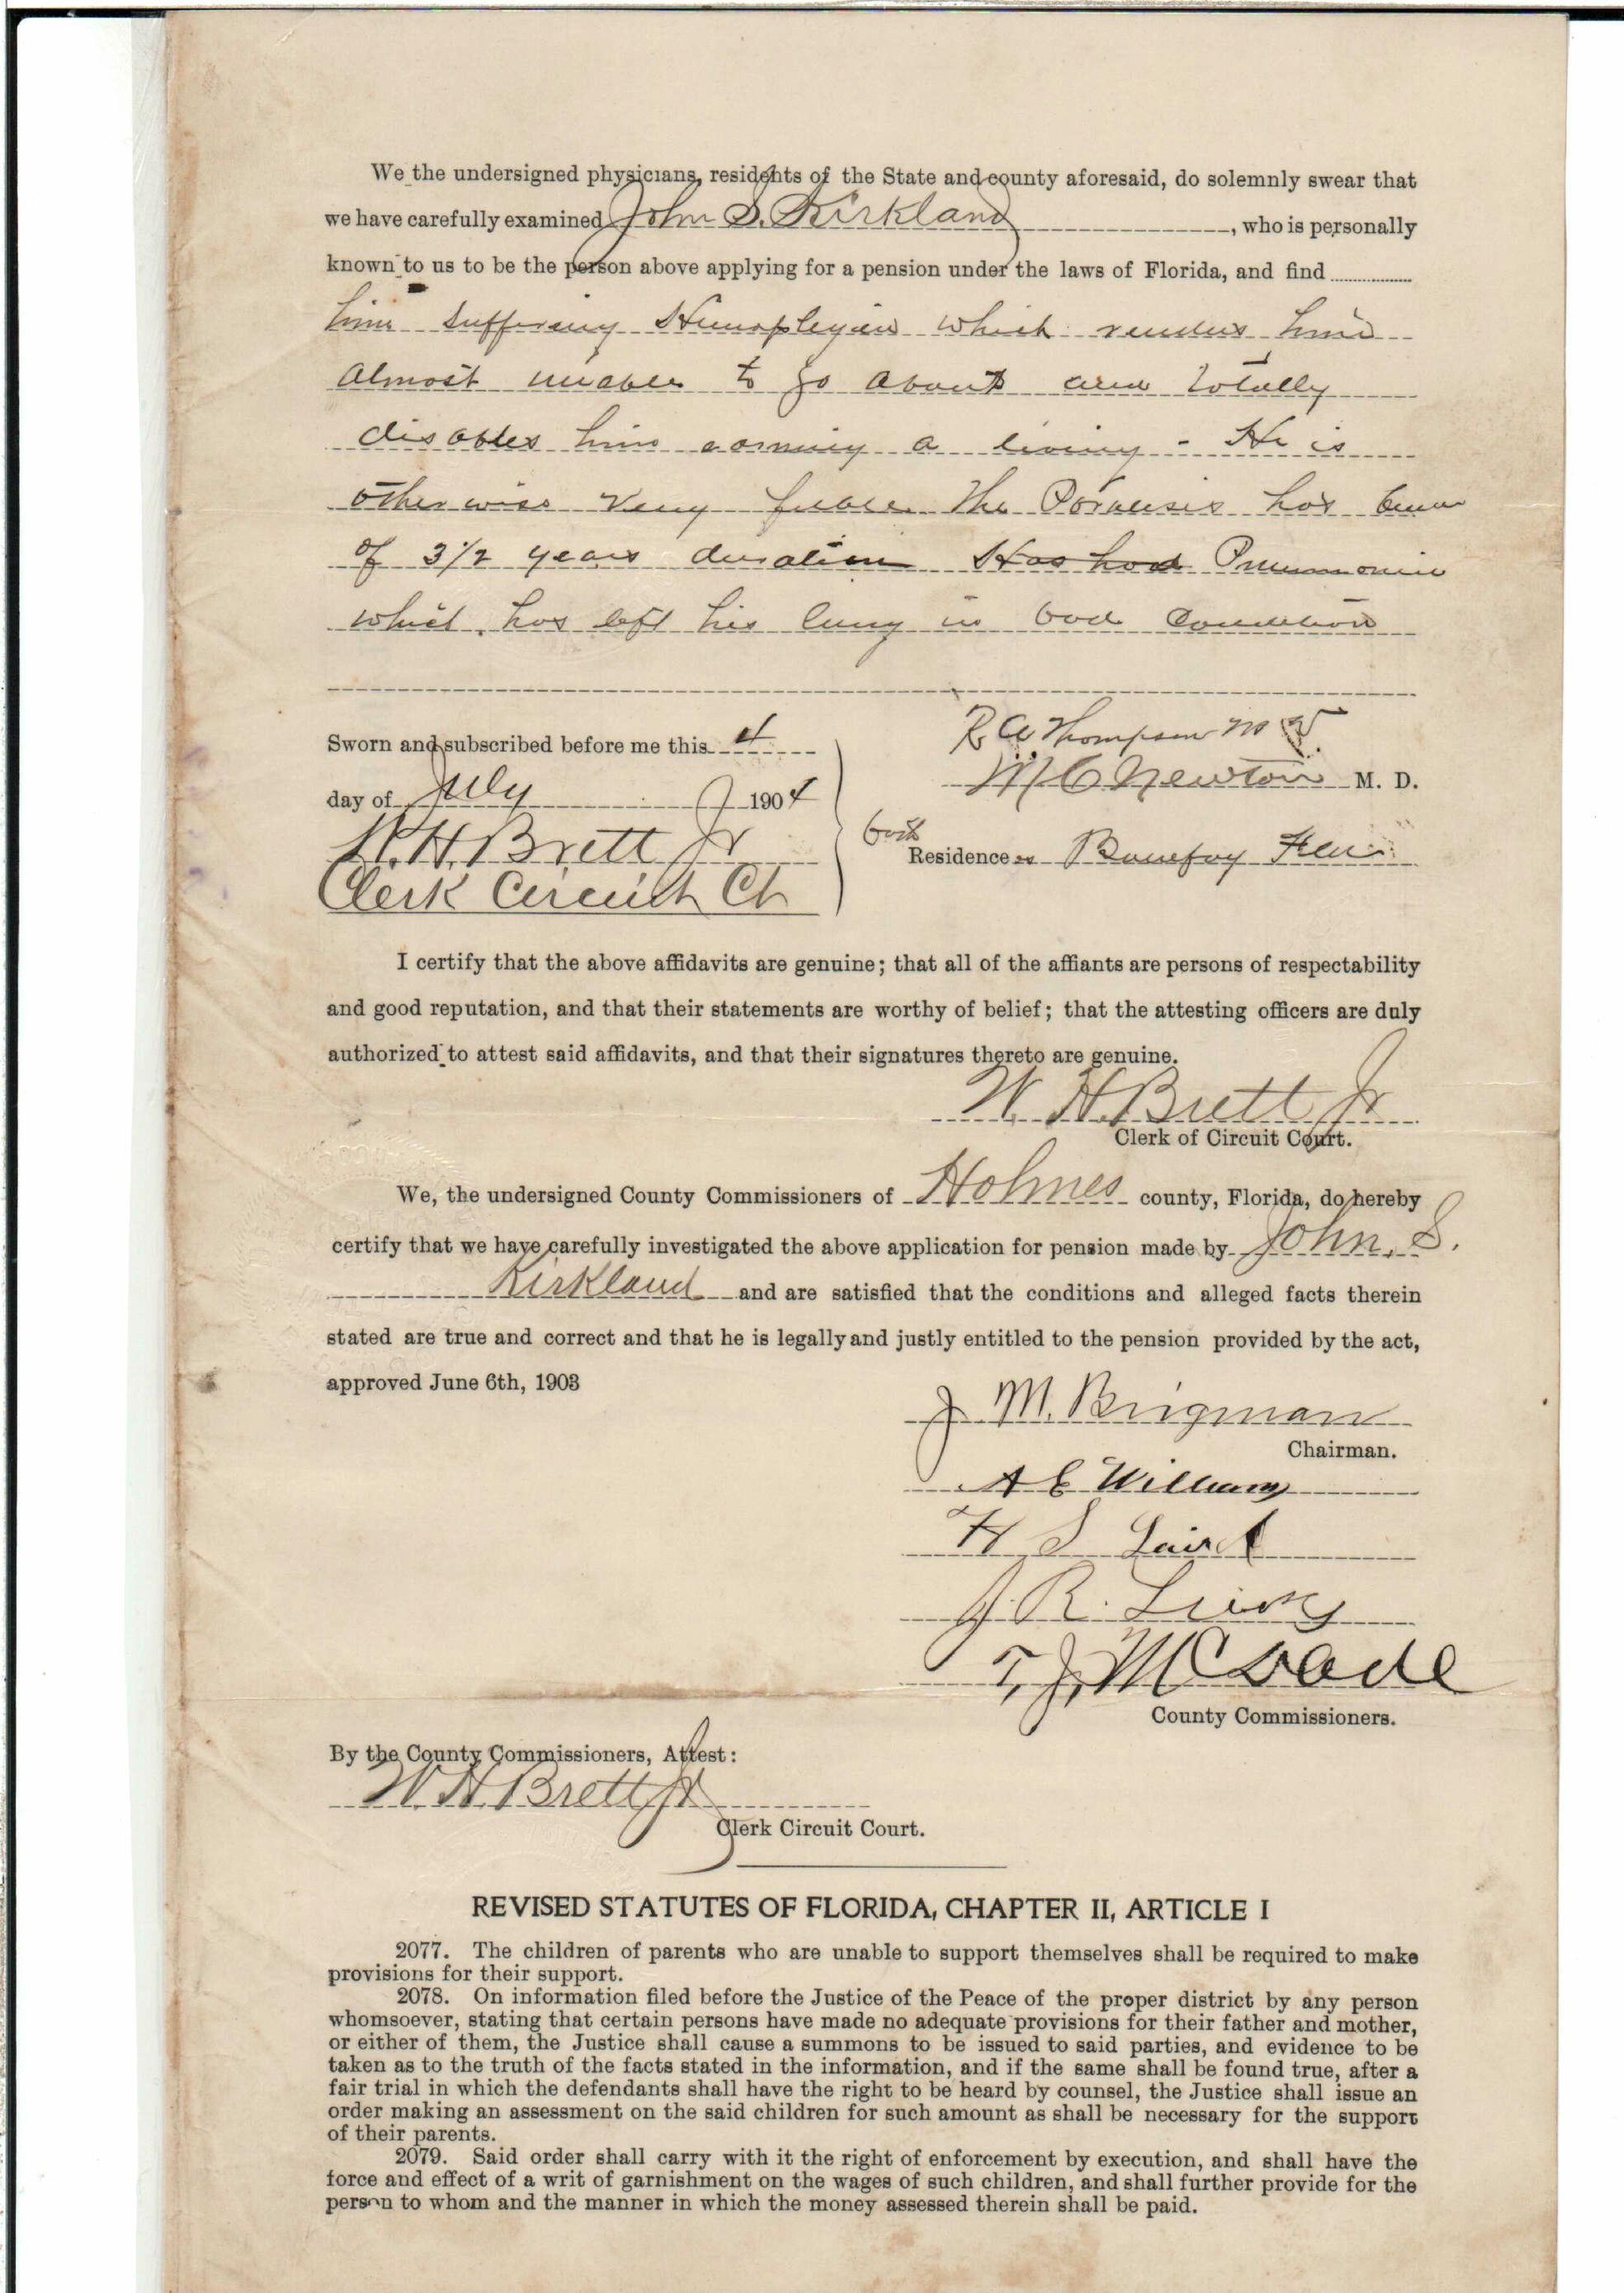 We the undersigned physicians, residents of the State and county aforesaid, do solemnly swear that
we have carefully examined John S. Kirkland, who is personally
known to us to be the person above applying for a pension under the laws of Florida, and find
him suffering which renders him
almost unable to go about and totally
disables him earning a living - He is
otherwise very feeble The has been
of 3 1/2 years duration Has had Pneumonia
which has left his lung in bad condition
Sworn and subscribed before me this 4
day of July 1904
W. H. Brett Jr
Clerk Circuit Ct
R A Thompson M D.
M C Newton M. D.
both
Residence Bonifay Fla
I certify that the above affidavits are genuine; that all of the affiants are persons of respectability
and good reputation, and that their statements are worthy of belief; that the attesting officers are duly
authorized to attest said affidavits, and that their signatures thereto are genuine.
W. H. Brett Jr
Clerk of Circuit Court.
We, the undersigned County Commissioners of Holmes county, Florida, do hereby
certify that we have carefully investigated the above application for pension made by John. S.
Kirkland and are satisfied that the conditions and alleged facts therein
stated are true and correct and that he is legally and justly entitled to the pension provided by the act,
approved June 6th, 1903
J M. Brigman
Chairman.
A E Williams
H S Laird
J. R.
T. J. McDade
County Commissioners.
By the County Commissioners, Attest:
W. H. Brett Jr
Clerk Circuit Court.
REVISED STATUTES OF FLORIDA, CHAPTER II, ARTICLE I
2077. The children of parents who are unable to support themselves shall be required to make
provisions for their support.
2078. On information filed before the Justice of the Peace of the proper district by any person
whomsoever, stating that certain persons have made no adequate provisions for their father and mother,
or either of them, the Justice shall cause a summons to be issued to said parties, and evidence to be
taken as to the truth of the facts stated in the information, and if the same shall be found true, after a
fair trial in which the defendants shall have the right to be heard by counsel, the Justice shall issue an
order making an assessment on the said children for such amount as shall be necessary for the support
of their parents.
2079. Said order shall carry with it the right of enforcement by execution, and shall have the
force and effect of a writ of garnishment on the wages of such children, and shall further provide for the
person to whom and the manner in which the money assessed therein shall be paid.